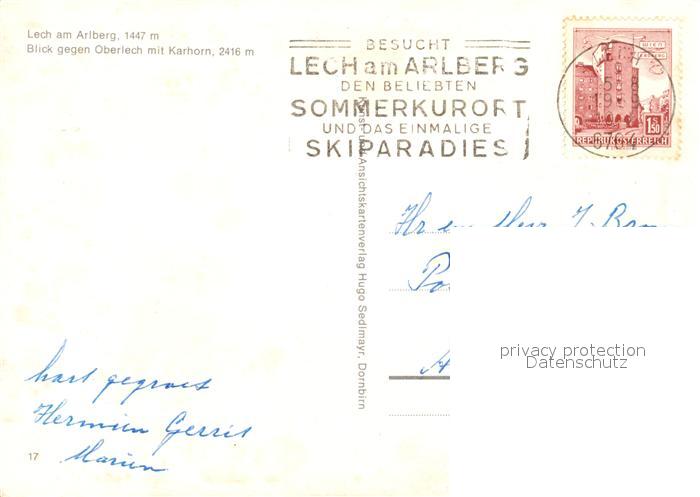 Lech am Arlberg, 1447 m
Blick gegen Oberlech mit Karhorn, 2416 m
BESUCHT
LECH am ARLBERG
DEN BELIEBTEN
SOMMERKURORT
UND DAS EINMALIGE
SKIPARADIES
WIEN
1.50
REPUBLIK ÖSTERREICH
Ansichtskartenverlag Hugo Sedlmayr, Dornbirn
Hr en
privacy protection
Datenschutz
hart gegroet
Hermien Gerrit
Marien
17